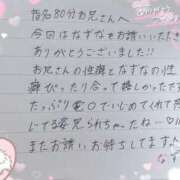 指名80分お兄さんへ
今回はなずなをお誘いいただき
ありがとうございました!!
お兄さんの性癖となずなの性
癖ぴったり合って嬉しかったです
たっぷり電○でいじめてくれて感
じてる姿見られちゃったね…♡
またお誘いお待ちしてます
なず